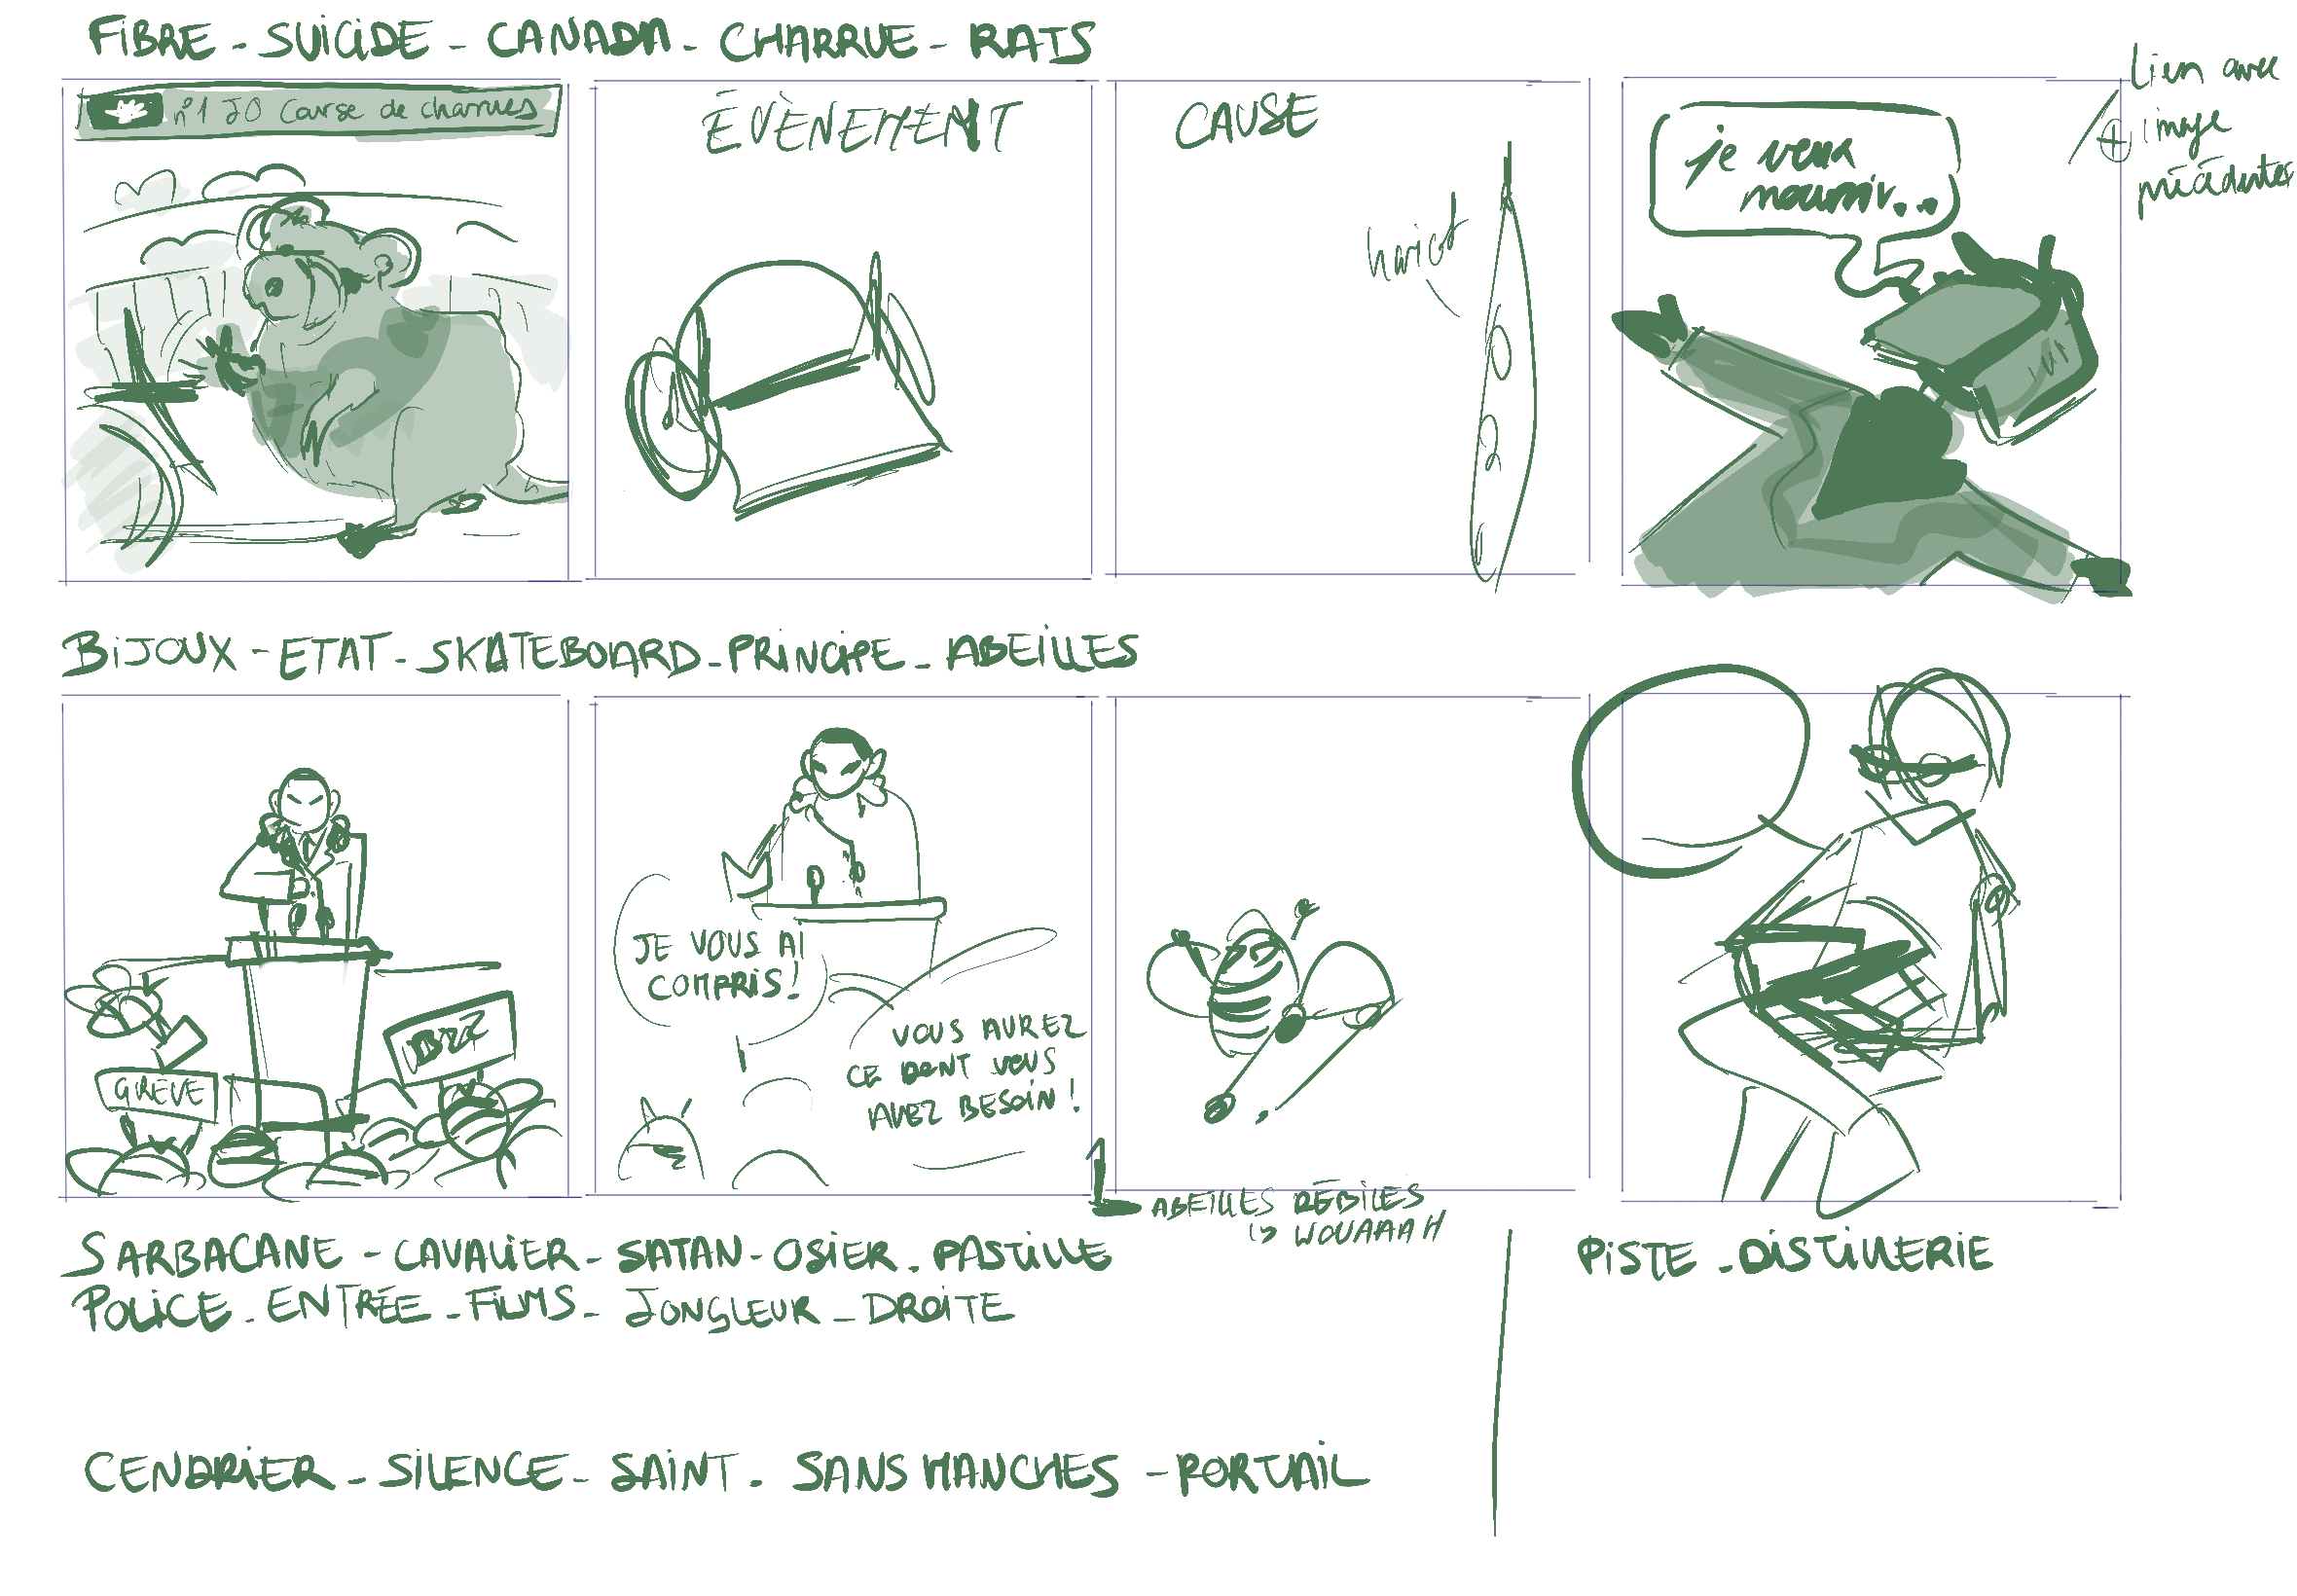 FIBRE - SUICIDE - CANADA - CHARRUE - RATS
n°1 JO Course de charrues
ÉVÈNEMENT
CAUSE
haricot
je veux
mourrir...
Lien avec
image
précédentes
BIJOUX - ETAT - SKATEBOARD - PRINCIPE - ABEILLES
GREVE
BZZ
JE VOUS AI
COMPRIS!
VOUS AUREZ
CE DONT VOUS
AVEZ BESOIN!
1
ABEILLES REBELLES
WOUAAAH
SARBACANE - CAVALIER - SATAN - OSIER - PASTILLE
POLICE - ENTRÉE - FILMS - JONGLEUR - DROITE
PISTE - DISTILLERIE
CENDRIER - SILENCE - SAINT - SANS MANCHES - PORTAIL